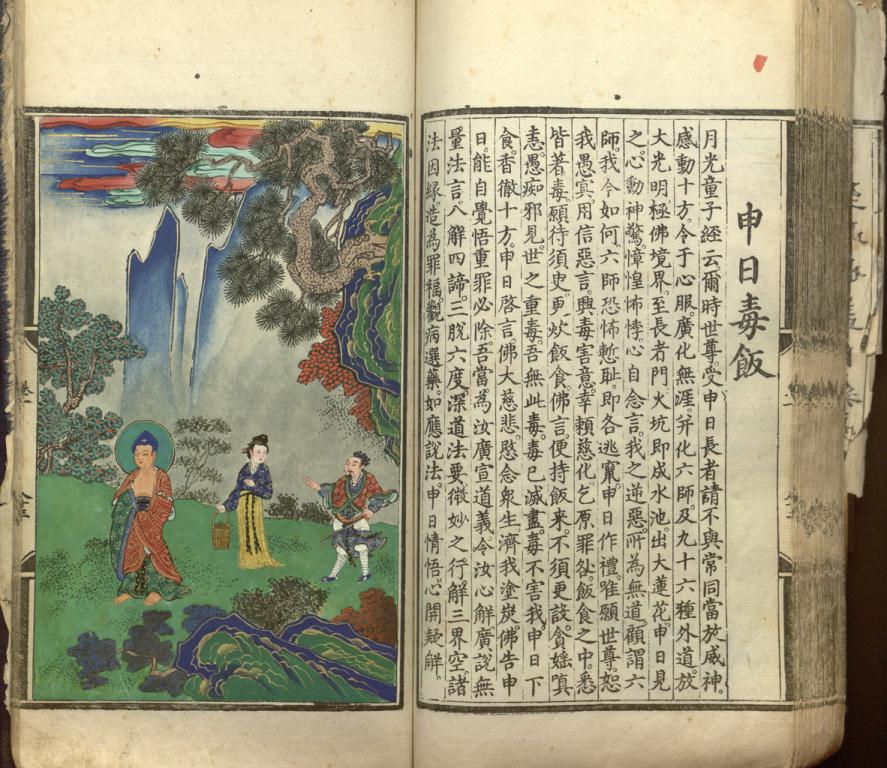 申日毒飯
月光童子經云。爾時世尊受申日長者請不與常同當放威神。
感動十方。令于心服。廣化無涯。并化六師。及九十六種外道。放
大光明極佛境界。至長者門火坑即成水池。出大蓮花。申日見
之。心動神驚。慞惶怖悸。心自念言。我之逆惡。所為無道。顧謂六
師。我今如何。六師恐怖慙耻。即各逃竄。申日作禮。唯願世尊。恕
我愚冥。用信惡言。興毒害意。幸賴慈化。乞原罪咎。飯食之中。悉
皆著毒。願待須臾。更炊飯食。佛言。便持飯来。不須更設。貪婬嗔
恚。愚痴邪見。世之重毒。吾無此毒。毒已滅盡。毒不害我。申日下
食。香徹十方。申日啓言。佛大慈悲。愍念衆生。濟我塗炭。佛告申
日。能自覺悟。重罪必除。吾當為汝廣宣道義。令汝心解。廣說無
量法言。八解四諦。三脫六度。深道法要。微妙之行。解三界空。諸
法因緣。造為罪福。觀病選藥。如應說法。申日情悟。心開疑解。